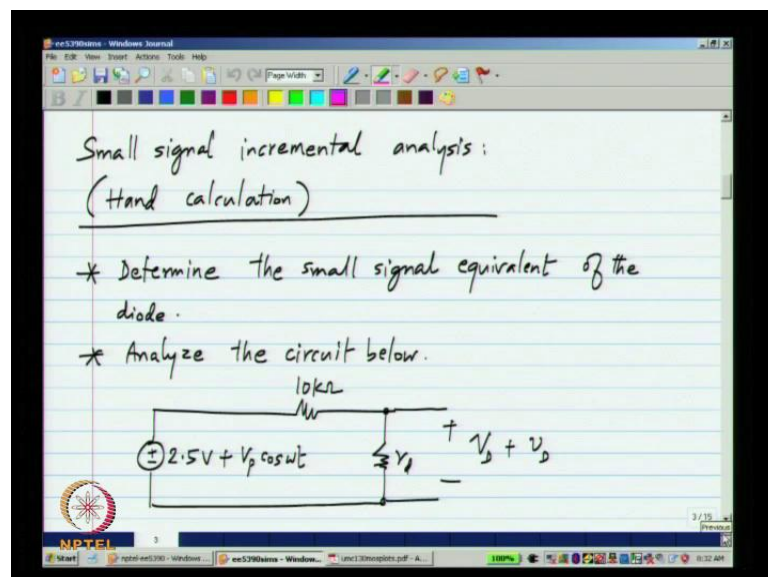 ee5390sims - Windows Journal
File Edit View Insert Actions Tools Help
Page Width
B I
Small signal incremental analysis :
(Hand calculation)
* Determine the small signal equivalent of the
diode.
* Analyze the circuit below.
10kΩ
2.5V + Vp cos ωt
rd
+
VD + vD
−
3/15
Previous
NPTEL
3
Start
nptel-ee5390 - Windows ...
ee5390sims - Window...
umc130mosplots.pdf - A...
100%
8:32 AM